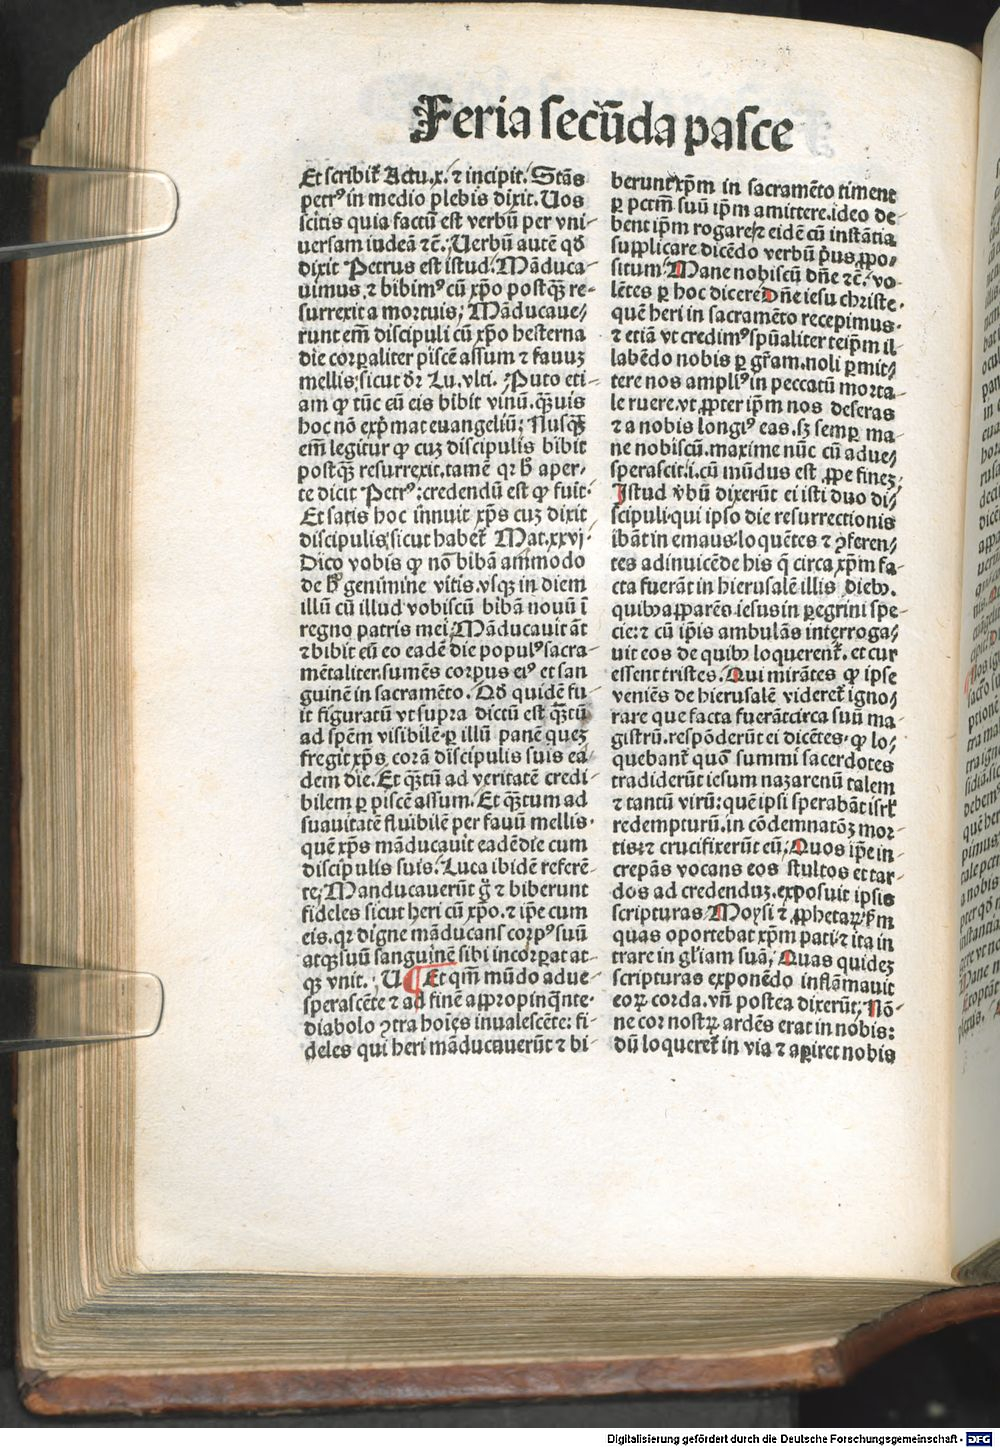 Feria secūda pasce
Et scribit᷑ Actu.x. ⁊ incipit. Stās
petrꝰ in medio plebis dixit. Uos
scitis quia factū est verbū per vni
uersam iudeā ⁊c̄. Uerbū autē qd̄
dixit Petrus est istud. Māduca-
uimus ⁊ bibimꝰ cū xp̄o postq̄ꝫ re-
surrexit a mortuis; Māducaue/
runt em̄ discipuli cū xp̄o hesterna
die corꝑaliter piscē assum ⁊ fauuꝫ
mellis, sicut dr̄ Lu. vlti. Puto eti-
am ꝙ tūc cū eis bibit vinū. q̄ꝫuis
hoc nō exp̄mat euangeliū; Nusq̄ꝫ
em̄ legitur ꝙ cuꝫ discipulis bibit
postq̄ꝫ resurrexit. tamē qꝛ b̄ aper-
te dicit Petrꝰ: credendū est ꝙ fuit.
Et satis hoc innuit xp̄s cuꝫ dixit
discipulis, sicut habet᷑ Mat. xxvi.
Dico vobis ꝙ nō bibā ammodo
de genimine vitis. vsqꝫ in diem
illū cū illud vobiscū bibā nouū ī
regno patris mei; Māducauit āt
⁊ bibit eū eo eadē die populꝰ sacra-
mētaliter. sumēs corpus eiꝰ et san
guinē in sacramēto. Qd̄ quidē fu-
it figuratū vt supra dictū est q̄ꝫtū
ad spēm visibilē. ꝑ illū panē queꝫ
fregit xp̄s corā discipulis suis ea-
dem die. Et q̄ꝫtū ad veritatē credi-
bilem ꝑ piscē assum. Et q̄ꝫtum ad
suauitatē fluibilē per fauū mellis.
quē xp̄s māducauit eadē die cum
discipulis suis. Luca ibidē referē-
te; Manducauerūt ⁊ biberunt
fideles sicut heri cū xp̄o. ⁊ ip̄e cum
eis. qꝛ digne māducans corpꝰ suū
atqꝫ suū sanguinē sibi incorꝑat at-
qꝫ vnit. U Et qm̄ mūdo adue-
sperascēte ⁊ ad finē appropinq̄nte.
diabolo ꝯtra hoīes inualescēte: fi-
deles qui heri māducauerūt ⁊ bi-
berunt xp̄m in sacramēto timent
ꝑ pctm̄ suū ip̄m amittere. ideo de-
bent ip̄m rogare ⁊ eidē cū instātia
supplicare dicēdo verbū p̄us ꝓpo/
situm. Mane nobiscū dn̄e ⁊c̄. vo-
lētes ꝑ hoc dicere Dn̄e iesu christe.
quē heri in sacramēto recepimus.
⁊ etiā vt credimꝰ spūaliter teip̄m il/
labēdo nobis ꝑ gr̄am. noli ꝑmit/
tere nos ampliꝰ in peccatū morta-
le ruere. vt ꝓpter ip̄m nos deseras
⁊ a nobis longiꝰ eas. sꝫ semꝑ ma-
ne nobiscū. maxime nūc cū adue/
sperascit. i. cū mūdus est ꝓpe fineꝫ.
Istud v̄bū dixerūt ei isti duo di/
scipuli. qui ipso die resurrectionis
ibāt in emaus. loquētes ⁊ ꝯferen/
tes adinuicē de his q̄ circa xp̄m fa-
cta fuerāt in hierusalē illis diebꝰ.
quibꝰ apparēs iesus in peregrini spe-
cie: ⁊ cū ip̄is ambulās interroga/
uit eos de quibꝰ loquerent᷑. et cur
essent tristes. Qui mirātes ꝙ ipse
veniēs de hierusalē videret᷑ igno/
rare que facta fuerāt circa suū ma-
gistrū. respōderūt ei dicētes. ꝙ lo/
quebant᷑ quō summi sacerdotes
tradiderūt iesum nazarenū talem
⁊ tantū virū: quē ipsi sperabāt isrl̄
redempturū. in cōdemnatōꝫ mor-
tis: ⁊ crucifixerūt eū; Quos ip̄e in-
crepās vocans eos stultos et tar-
dos ad credenduꝫ. exposuit ipsis
scripturas Moysi ⁊ ꝓphetaꝝ. ẜm
quas oportebat xp̄m pati. ⁊ ita in
trare in gl̄iam suā. Quas quideꝫ
scripturas exponēdo inflāmauit
eoꝝ corda. vn̄ postea dixerūt; Nō-
ne cor nostꝝ ardēs erat in nobis:
dū loqueret᷑ in via ⁊ aꝑiret nobis
Digitalisierung gefördert durch die Deutsche Forschungsgemeinschaft - DFG